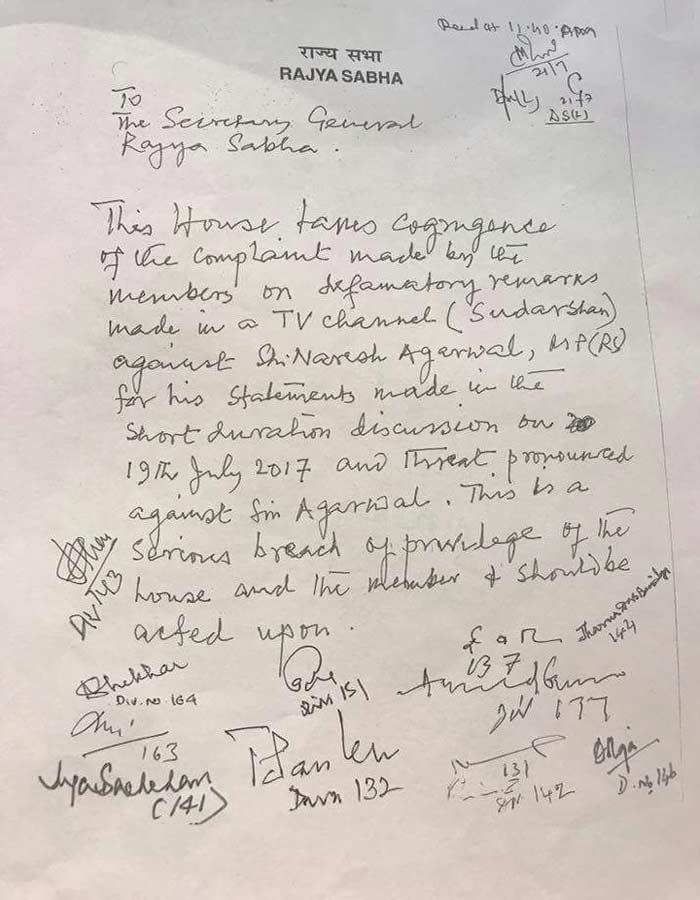 Recd at 11.40 AM
21/7
21/7
DS(L)
राज्य सभा
RAJYA SABHA
To
The Secretary General
Rajya Sabha.
This House takes cognigence
of the complaint made by the
members on defamatory remarks
made in a TV channel (Sudarshan)
against Shi. Naresh Agarwal, MP(RS)
for his statements made in the
short duration discussion on
19th July 2017 and threat pronounced
against Sri Agarwal. This is a
serious breach of privilege of the
house and the member & should be
acted upon.
Div 143
144
137
Div. no 164
Div 151
Div 177
163
Jya Bachchan
(141)
132
131
142
D. no 146